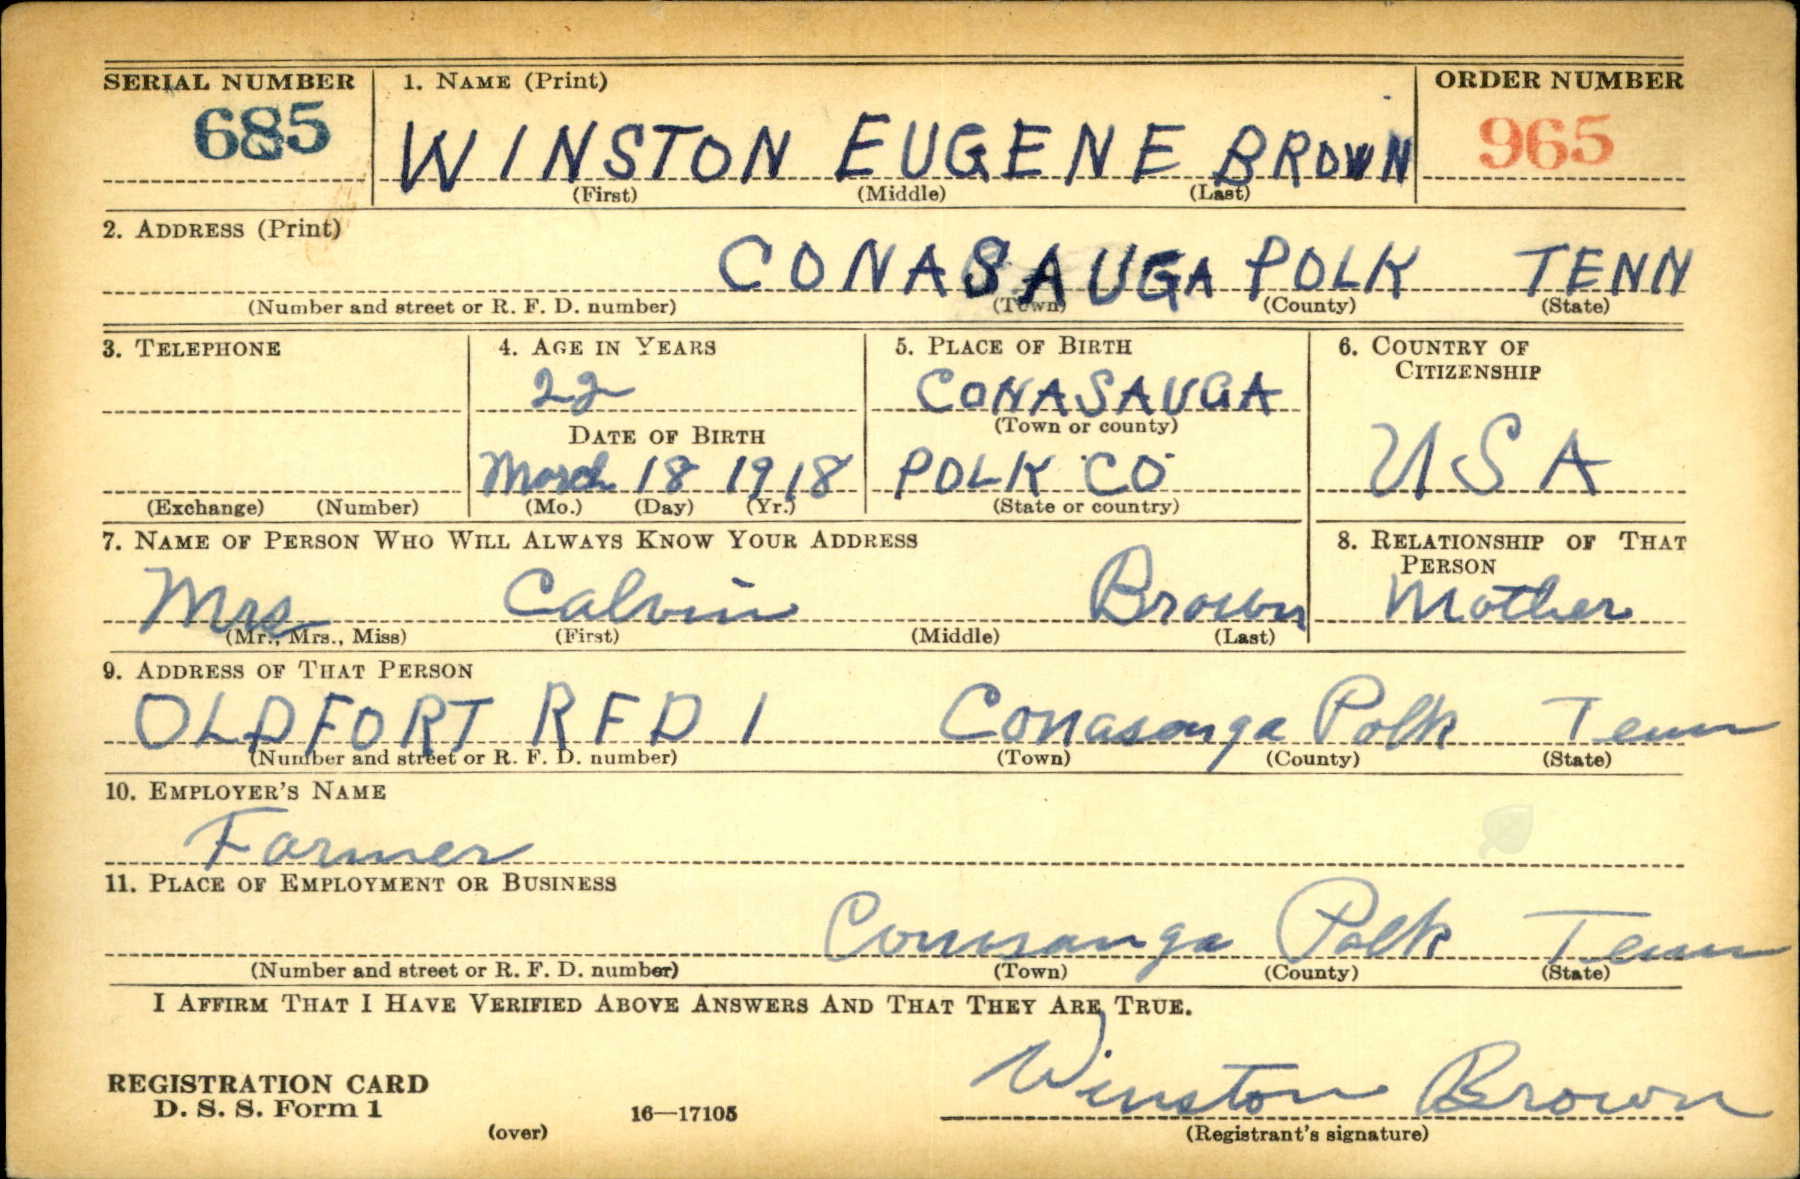 SERIAL NUMBER 1. NAME (Print) ORDER NUMBER
685 WINSTON EUGENE BROWN 965
(First) (Middle) (Last)
2. ADDRESS (Print)
CONASAUGA POLK TENN
(Number and street or R. F. D. number) (Town) (County) (State)
3. TELEPHONE 4. AGE IN YEARS 5. PLACE OF BIRTH 6. COUNTRY OF
CITIZENSHIP
22 CONASAUGA
(Town or county)
DATE OF BIRTH
March 18 1918 POLK CO USA
(Exchange) (Number) (Mo.) (Day) (Yr.) (State or country)
7. NAME OF PERSON WHO WILL ALWAYS KNOW YOUR ADDRESS 8. RELATIONSHIP OF THAT
PERSON
Mrs Calvin Brown Mother
(Mr., Mrs., Miss) (First) (Middle) (Last)
9. ADDRESS OF THAT PERSON
OLDFORT RFD 1 Conasauga Polk Tenn
(Number and street or R. F. D. number) (Town) (County) (State)
10. EMPLOYER'S NAME
Farmer
11. PLACE OF EMPLOYMENT OR BUSINESS
Conasauga Polk Tenn
(Number and street or R. F. D. number) (Town) (County) (State)
I AFFIRM THAT I HAVE VERIFIED ABOVE ANSWERS AND THAT THEY ARE TRUE.
Winston Brown
REGISTRATION CARD
D. S. S. Form 1 16—17105
(over) (Registrant's signature)